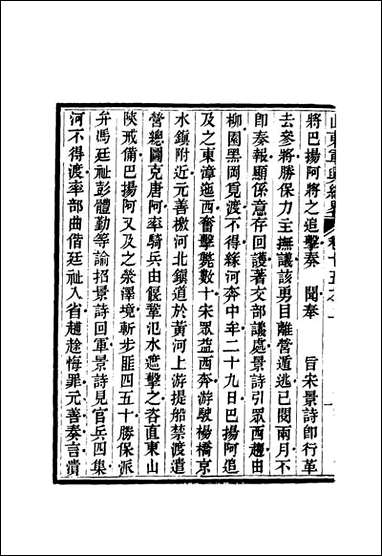 山東軍興紀畧　卷十五之一
將巴揚阿將之追擊奏　聞奉　旨宋景詩卽行革
去參將勝保力主撫議該勇目離營逍逃已閱兩月不
卽奏報顯係意存回護著交部議處景詩引眾西趨由
柳園黑岡覓渡不得緣河奔中牟二十九日巴揚阿追
及之東漳迤西奮擊斃數十宋眾益西奔游駛楊橋京
水鎮附近元善檄河北鎮道於黃河上游提船禁渡遣
營總圖克唐阿率騎兵由偃鞏氾水遮擊之咨直東山
陝戒備巴揚阿又及之滎澤境斬步匪四五十勝保派
弁馮廷祉彭體勤等諭招景詩回軍景詩見官兵四集
河不得渡率部曲偕廷祉入省趦趄悔罪元善奏言潰